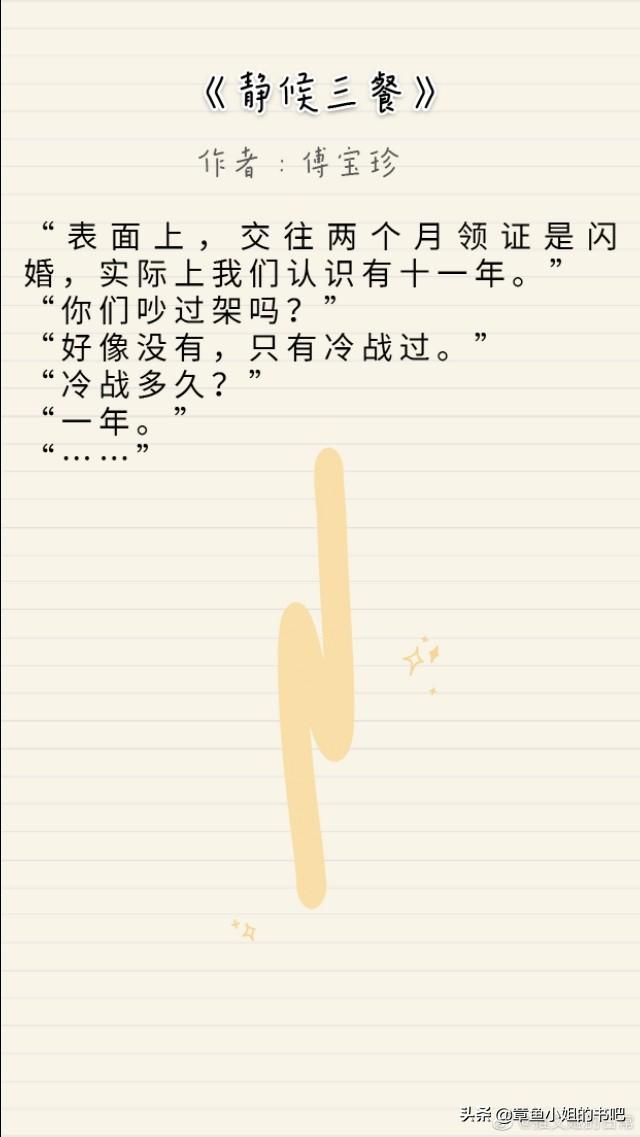 《静候三餐》
作者：傅宝珍
“表面上，交往两个月领证是闪
婚，实际上我们认识有十一年。”
“你们吵过架吗？”
“好像没有，只有冷战过。”
“冷战多久？”
“一年。”
“……”
头条 @章鱼小姐的书吧